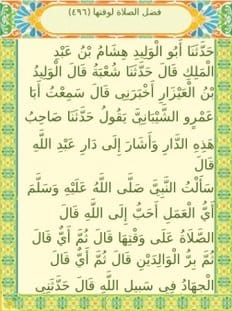 فضل الصلاة لوقتها (٤٩٦)
حَدَّثَنَا أَبُو الْوَلِيدِ هِشَامُ بْنُ عَبْدِ
الْمَلِكِ قَالَ حَدَّثَنَا شُعْبَةُ قَالَ الْوَلِيدُ
بْنُ الْعَيْزَارِ أَخْبَرَنِي قَالَ سَمِعْتُ أَبَا
عَمْرٍو الشَّيْبَانِيَّ يَقُولُ حَدَّثَنَا صَاحِبُ
هَذِهِ الدَّارِ وَأَشَارَ إِلَى دَارِ عَبْدِ اللَّهِ
قَالَ
سَأَلْتُ النَّبِيَّ صَلَّى اللَّهُ عَلَيْهِ وَسَلَّمَ
أَيُّ الْعَمَلِ أَحَبُّ إِلَى اللَّهِ قَالَ
الصَّلَاةُ عَلَى وَقْتِهَا قَالَ ثُمَّ أَيٌّ قَالَ
ثُمَّ بِرُّ الْوَالِدَيْنِ قَالَ ثُمَّ أَيٌّ قَالَ
الْجِهَادُ فِي سَبِيلِ اللَّهِ قَالَ حَدَّثَنِي